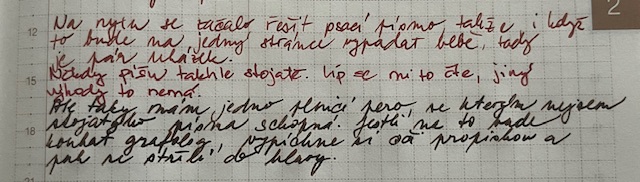 Na nyxu se začalo řešit psací písmo takže i když
to bude na jedný stránce vypadat blbě, tady
je pár ukázek.
Někdy píšu takhle stojatě. Líp se mi to čte, jiný
výhody to nemá.
Ale taky mám jedno plnící pero, se kterym nejsem
stojatýho písma schopná. Jestli na to bude
koukat grafolog, vypíchne si oči propiskou a
pak se střelí do hlavy.
12
15
18
21
2